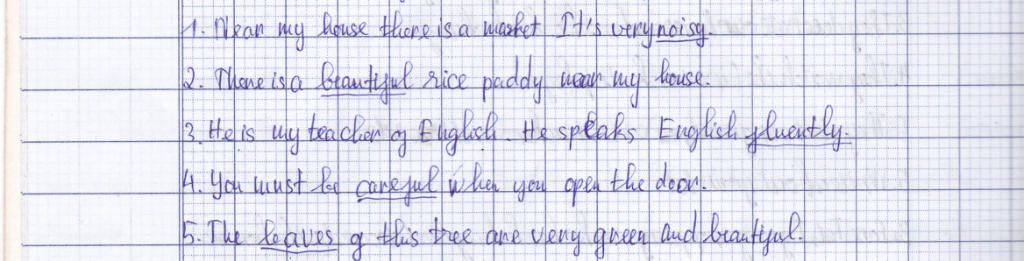 1. Near my house there is a market It's very noisy.
2. There is a beautiful rice paddy near my house.
3. He is my teacher of English. He speaks English fluently.
4. You must be careful when you open the door.
5. The leaves of this tree are very green and beautiful.